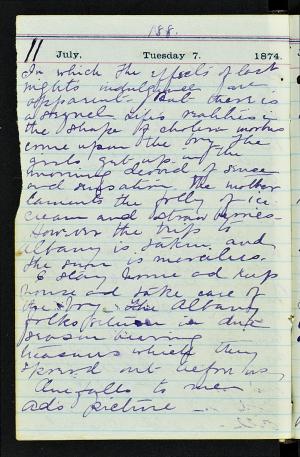 188.
11
July. Tuesday 7. 1874.
In which the effects of last
nights indulgence are
apparent. But there is
a
the shape of cholera morbus
come upon the boy. The
girls get up in the
morning devoid of sense
and sensation. The mother
laments the folly of ice
cream and straw berries.
However the trip to
Albany is taken and
the is merciless.
E stay home
and take care of
the boy. The Albany
folks return in due
season
treasures which they
spread out before us,
One falls to me
ads picture